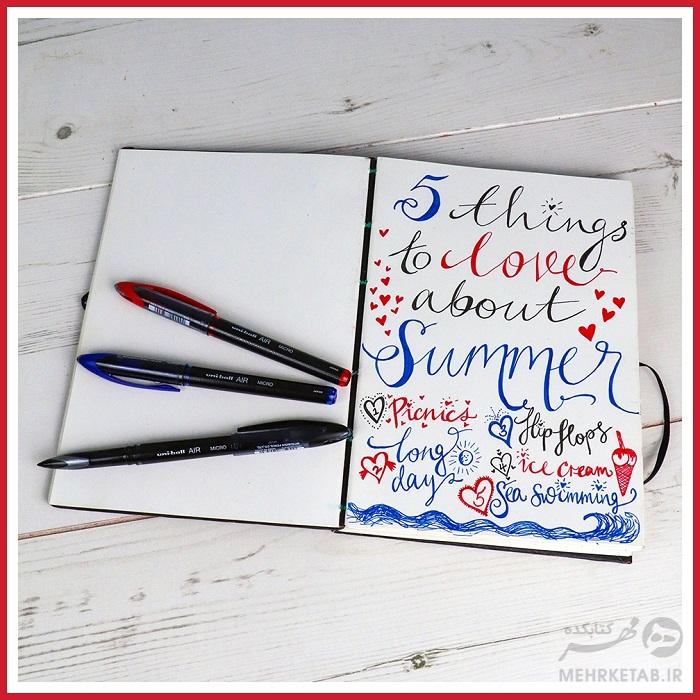 5 things
to love
about
Summer
1 Picnics
2 long
days
3 flip flops
4 ice cream
5 Sea swimming
uni-ball AIR MICRO
uni-ball AIR MICRO
uni-ball AIR MICRO
مهر کتابکده
MEHRKETAB.IR